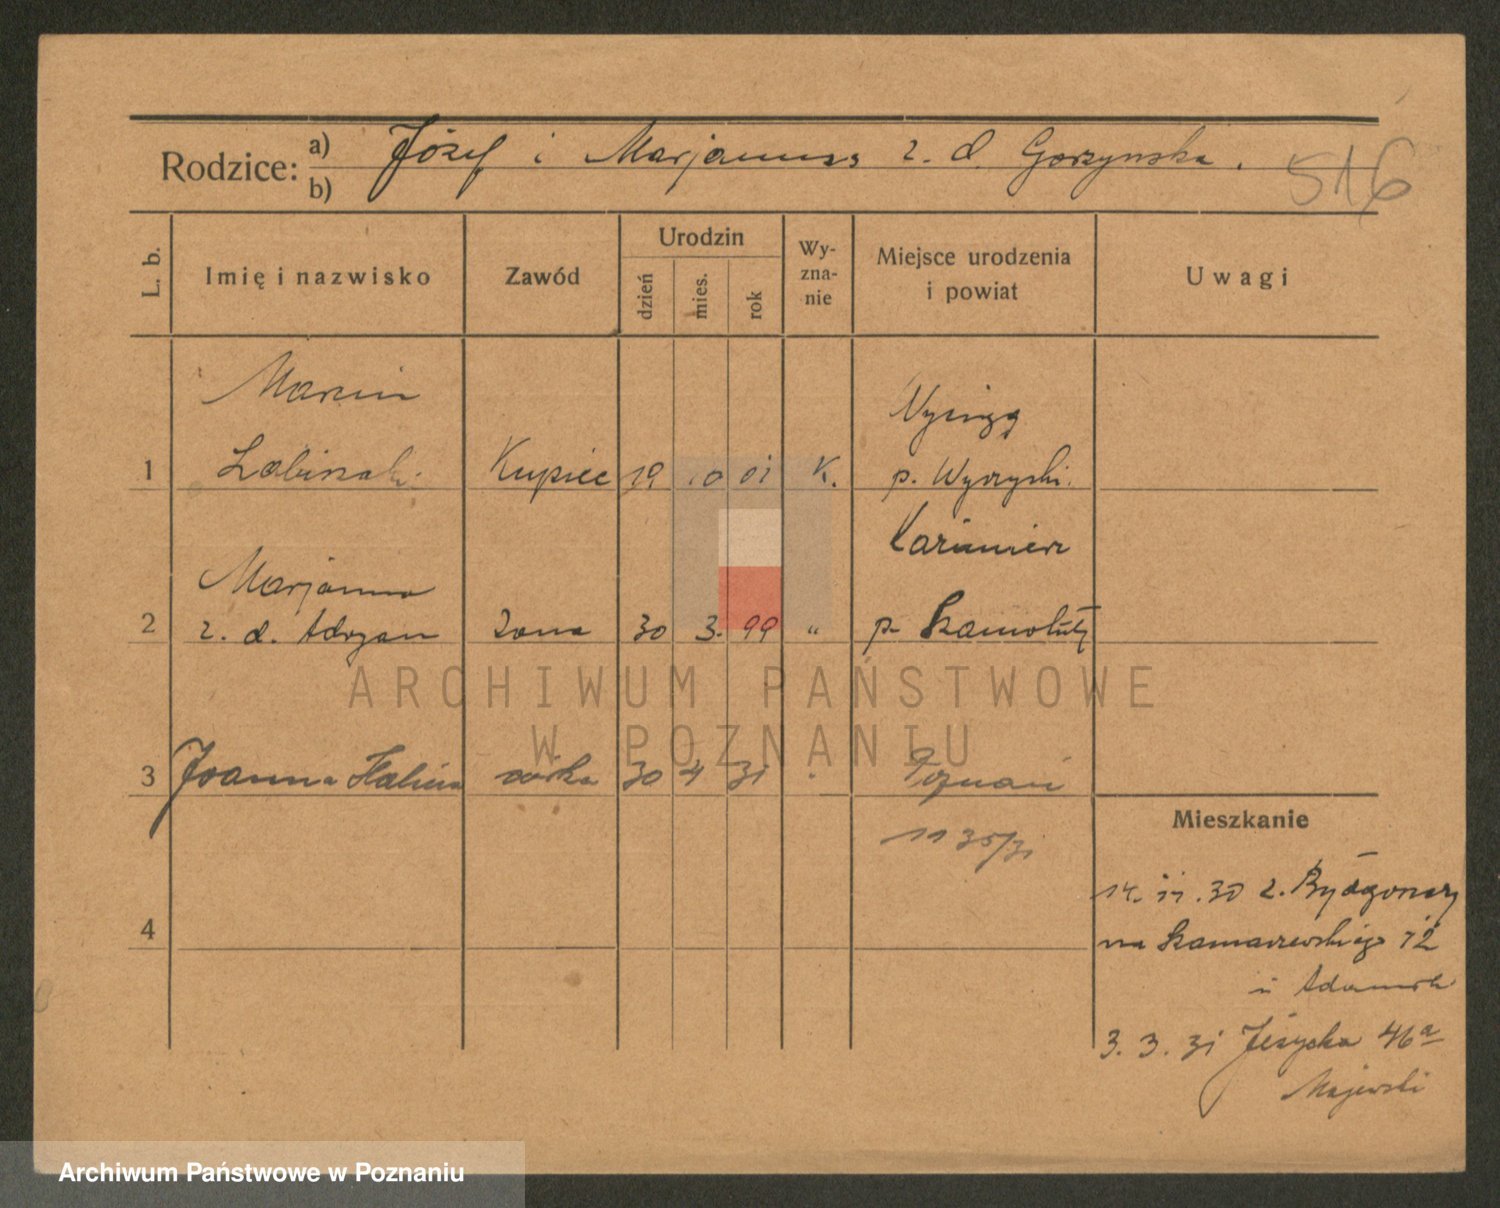 Rodzice: a) Józef i Marjanna z. d. Gorzyńska.
b)
516
L. b. Imię i nazwisko Zawód Urodzin dzień mies. rok Wy-zna-nie Miejsce urodzenia i powiat Uwagi
Marcin
1 Kupiec 19 10 01 K. p. Wyrzyski.
Kaźmierz
Marjanna
2 z. d. Adrzan żona 30 3. 99 " p. Szamotuły
3 Joanna Halina córka 30 4 31 Poznań
1135/31
Mieszkanie
14. 11. 30 z. Bydgoszczy
4
na Szamarzewskiego 12
u
3. 3. 31 Jeżycka 46a
Majewski
ARCHIWUM PAŃSTWOWE
W POZNANIU
Archiwum Państwowe w Poznaniu